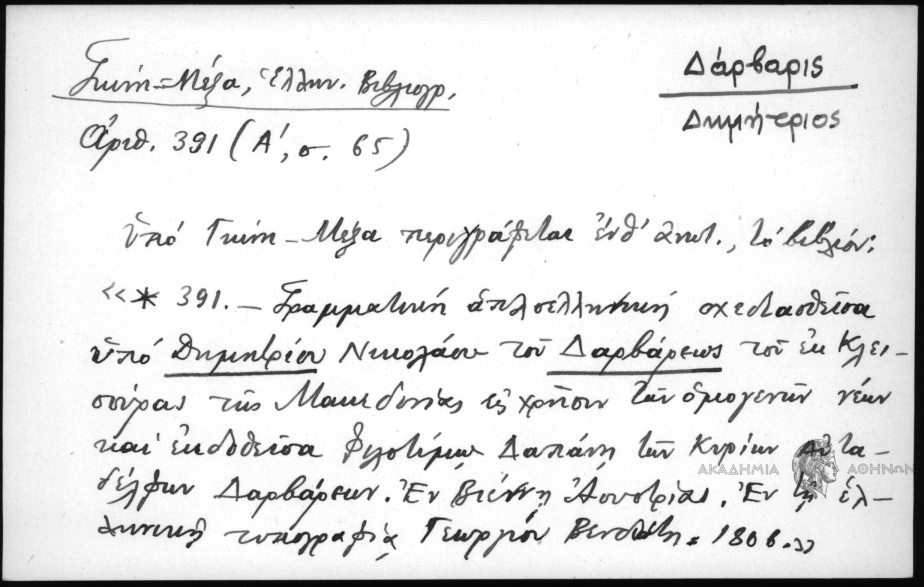 Γκίνη-Μέξα, Ἑλλην. Βιβλιογρ.
Δάρβαρις
Δημήτριος
Ἀριθ. 391 (Α΄, σ. 65)
ὑπό Γκίνη-Μέξα περιγράφεται ἔνθ' ἀνωτ., τό βιβλίον:
«* 391. – Γραμματική ἁπλοελληνική σχεδιασθεῖσα
ὑπό Δημητρίου Νικολάου τοῦ Δαρβάρεως τοῦ ἐκ Κλει-
σούρας τῆς Μακεδονίας εἰς χρῆσιν τῶν ὁμογενῶν νέων
καί ἐκδοθεῖσα φιλοτίμῳ δαπάνῃ τῶν Κυρίων Αὐτα-
δέλφων Δαρβάρεων. Ἐν Βιέννῃ Ἀουστρίας. Ἐν τῇ ἑλ-
ληνικῇ τυπογραφίᾳ Γεωργίου Βενδώτη = 1806.»
ΑΚΑΔΗΜΙΑ ΑΘΗΝΩΝ